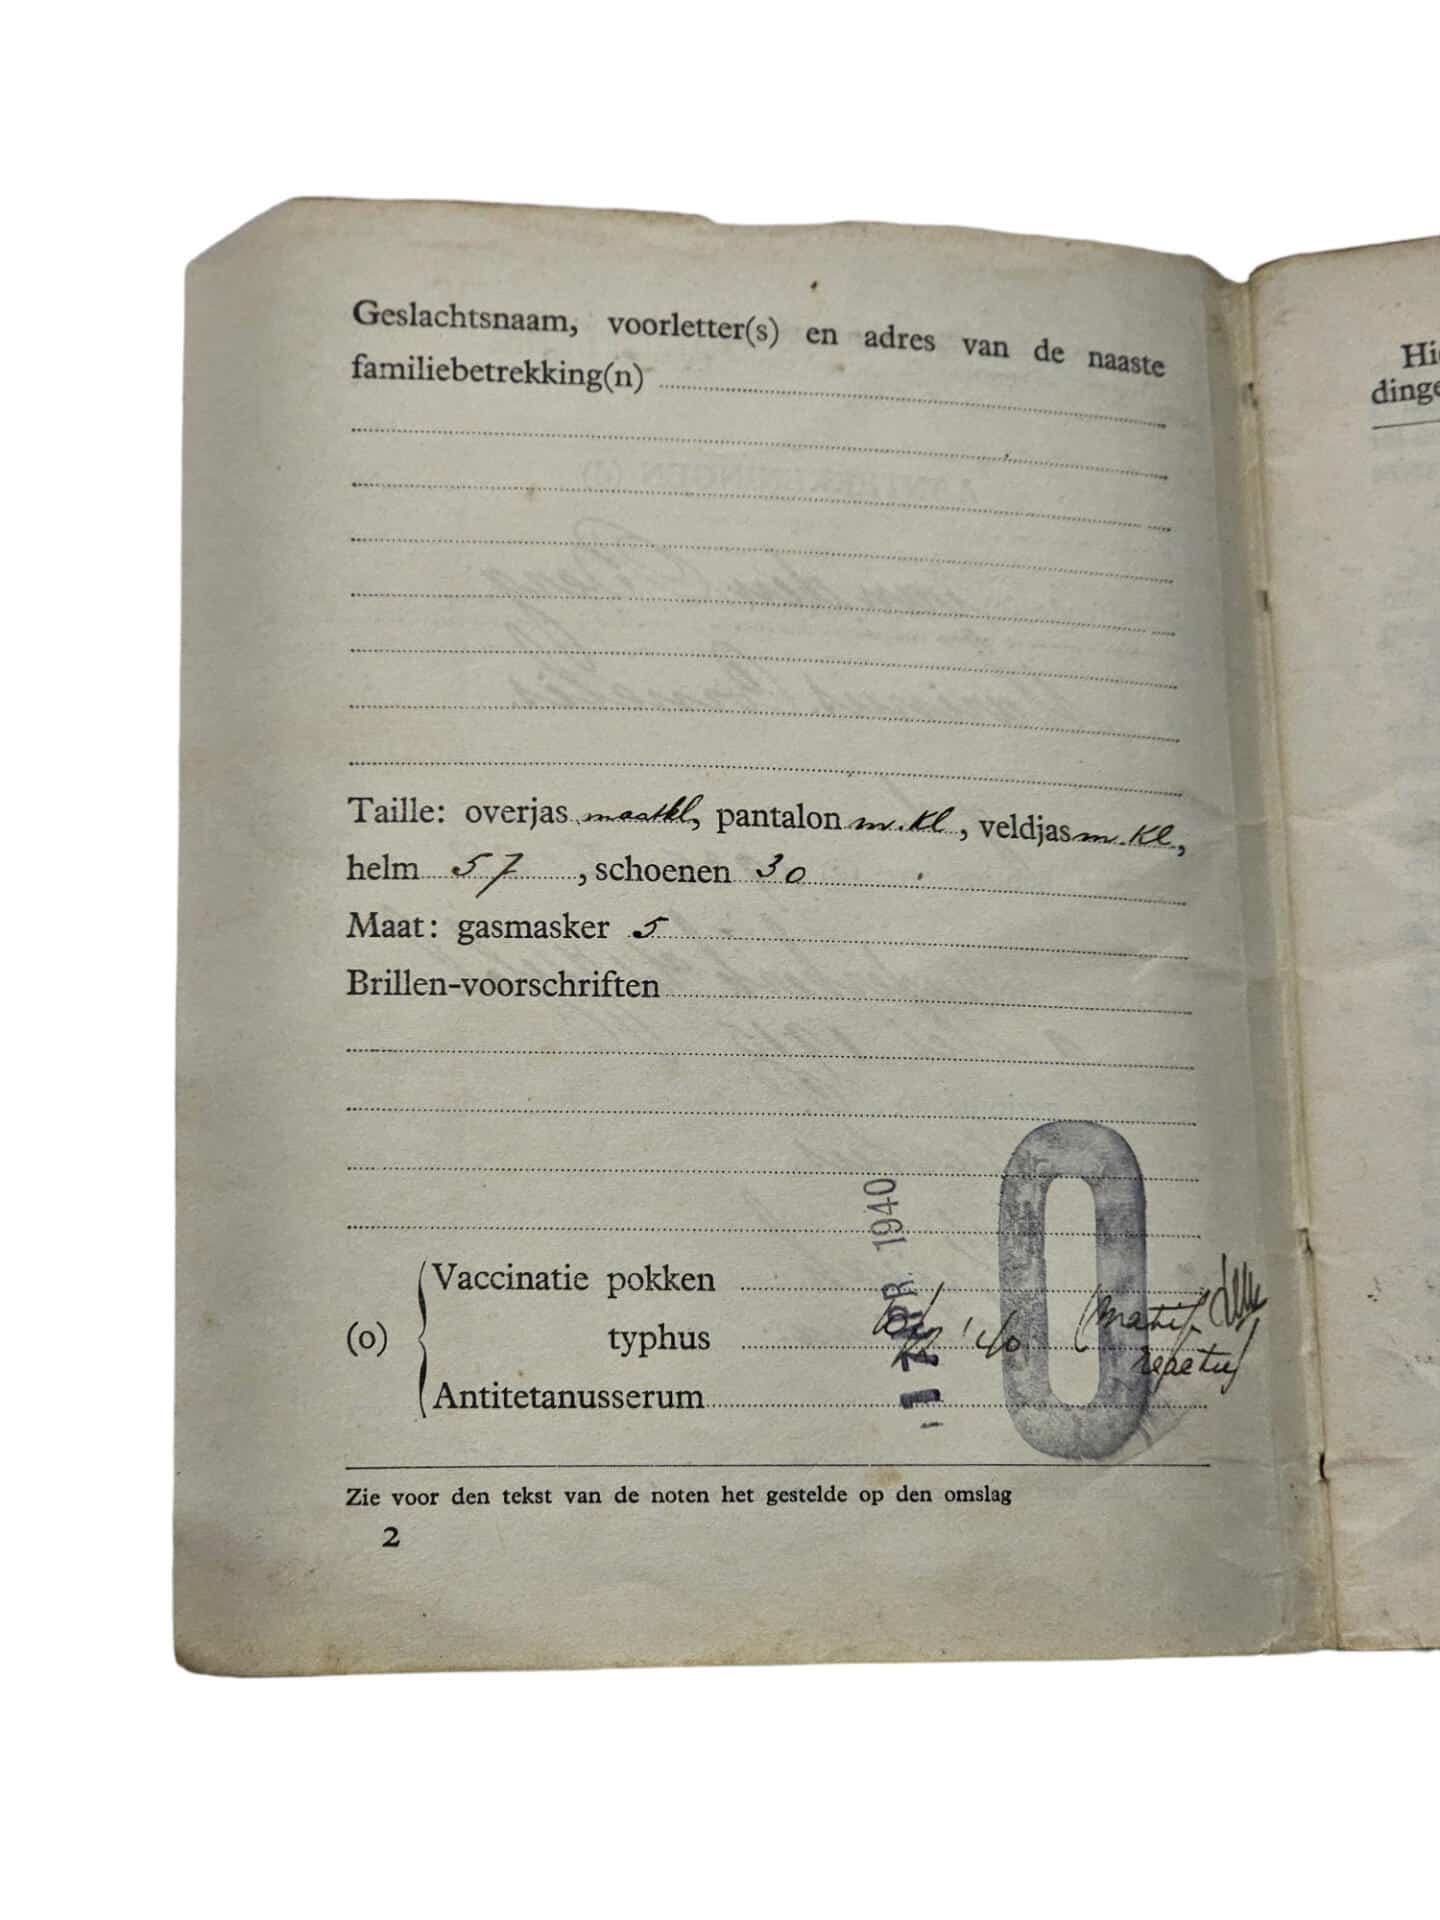 Geslachtsnaam, voorletter(s) en adres van de naaste
familiebetrekking(n)
Taille: overjas maatkl, pantalon m.kl, veldjas m.kl,
helm 57, schoenen 30
Maat: gasmasker 5
Brillen-voorschriften
Vaccinatie pokken
(o) typhus '40
Antitetanusserum
1940
O
Zie voor den tekst van de noten het gestelde op den omslag
2
Hi
dinge